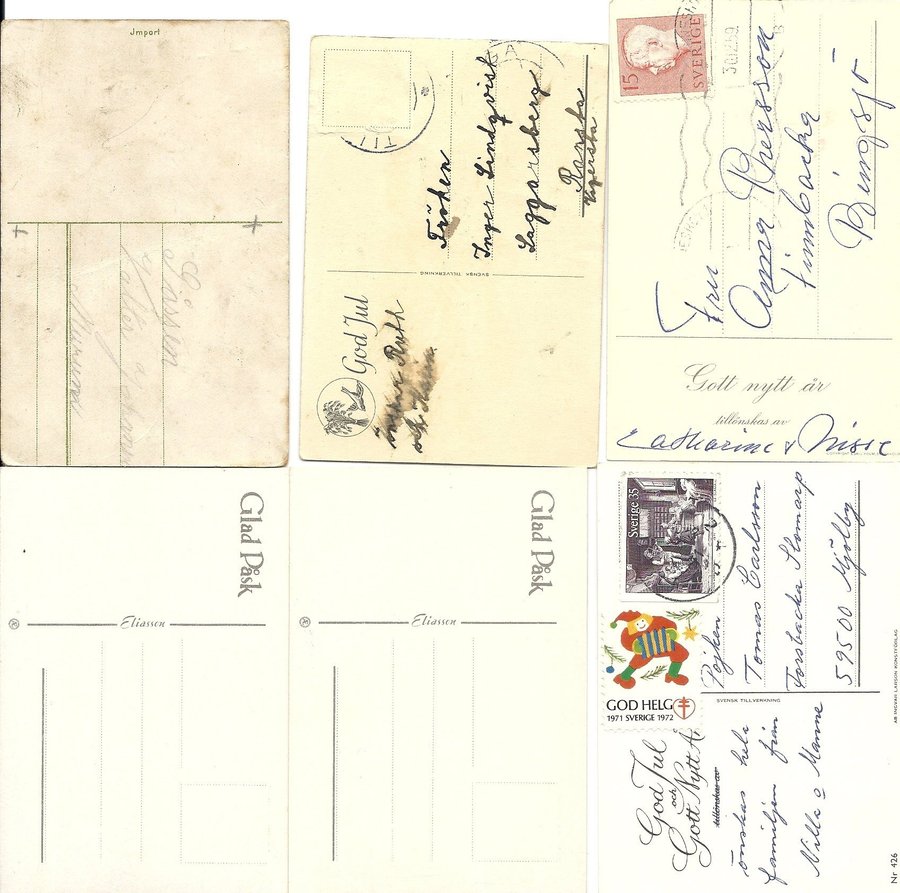 Import
Sissen
Fröken
Inger Lindqvist
Laggarsberg
Ransta
SVENSK TILLVERKNING
God Jul
Ruth
15 SVERIGE
Fru
Anna Persson
Finnbacka
Bingsjö
Gott nytt år
tillönskas av
Catharina & Nisse
Glad Påsk
Eliasson
Glad Påsk
Eliasson
Sverige 35
GOD HELG
1971 SVERIGE 1972
Pojken
Tomas Carlsson
Forsbacka Slomarp
59500 Mjölby
SVENSK TILLVERKNING
God Jul
och
Gott Nytt År
tillönskas av
önskas hela
familjen från
Nilla o Manne
AB INGVAR LARSSON KONSTFÖRLAG
Nr 426